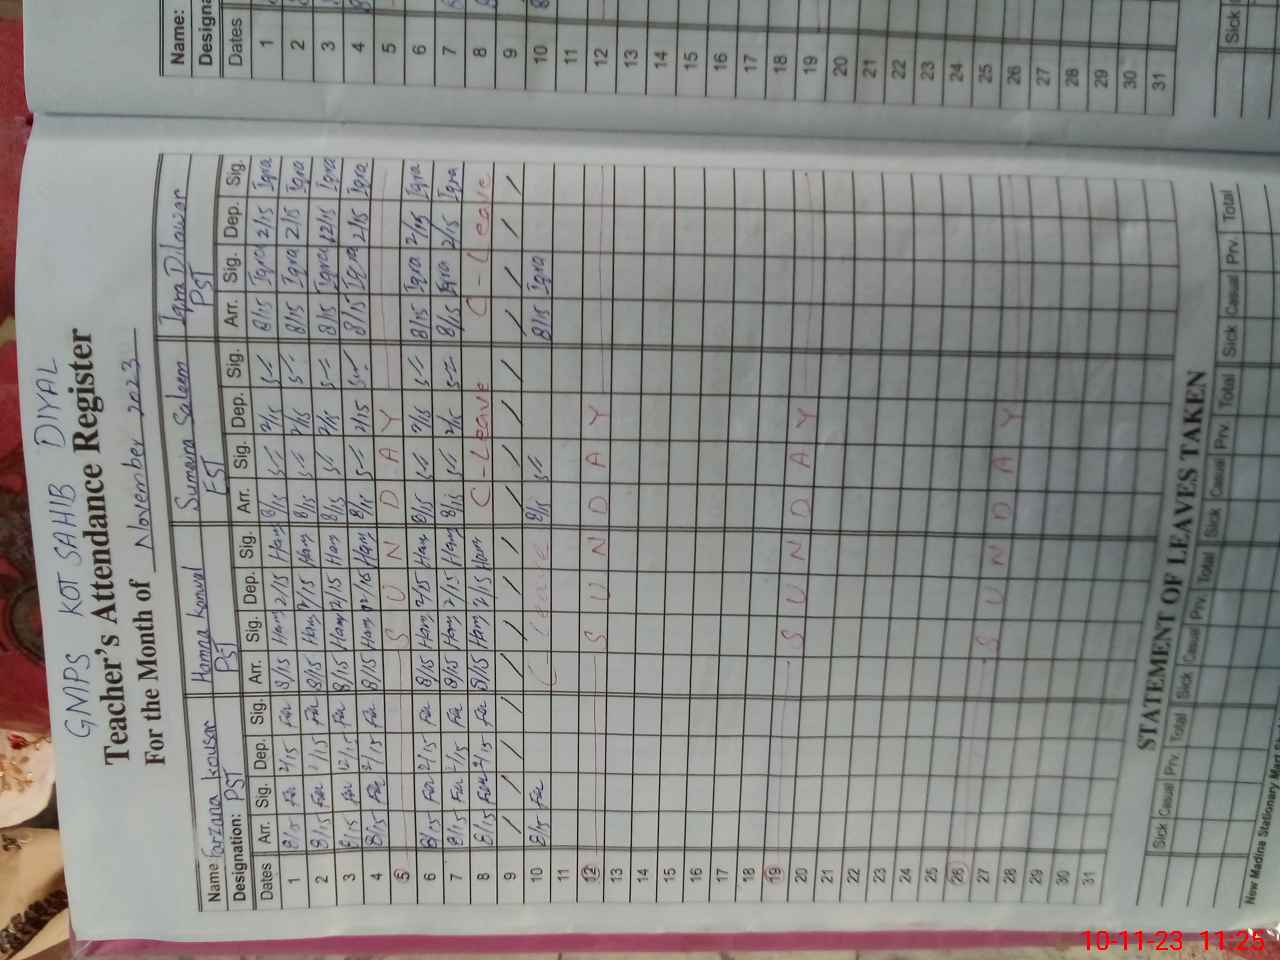 GMPS KOT SAHIB DIYAL
Teacher's Attendance Register
For the Month of November 2023
Name Farzana Kousar Hamna Kanwal Sumaira Saleem Iqra Dlawar
Designation: PST PST EST PST
Dates Arr. Sig. Dep. Sig. Arr. Sig. Dep. Sig. Arr. Sig. Dep. Sig. Arr. Sig. Dep. Sig.
1 8/15 Far 2/15 Far 8/15 Ham 2/15 Ham 8/15 2/15 8/15 Iqra 2/15 Iqra
2 8/15 Far 2/15 Far 8/15 Ham 2/15 Ham 8/15 2/15 8/15 Iqra 2/15 Iqra
3 8/15 Far 12/15 Far 8/15 Ham 12/15 Ham 8/15 2/15 8/15 Iqra 12/15 Iqra
4 8/15 Far 2/15 Far 8/15 Ham 2/15 Ham 8/15 2/15 8/15 Iqra 2/15 Iqra
5 S U N D A Y
6 8/15 Far 2/15 Far 8/15 Ham 2/15 Ham 8/15 2/15 8/15 Iqra 2/15 Iqra
7 8/15 Far 2/15 Far 8/15 Ham 2/15 Ham 8/15 2/15 8/15 Iqra 2/15 Iqra
8 8/15 Far 2/15 Far 8/15 Ham 2/15 Ham C-Leave C-Leave
9 / / / / / / / / / / / / / / / /
10 8/15 Far C-Leave 8/15 8/15 Iqra
11
12 S U N D A Y
13
14
15
16
17
18
19 S U N D A Y
20
21
22
23
24
25
26 S U N D A Y
27
28
29
30
31
STATEMENT OF LEAVES TAKEN
Sick Casual Prv. Total Sick Casual Prv. Total Sick Casual Prv. Total Sick Casual Prv. Total
New Madina Stationary Mart
Name:
Designa
Dates
1
2
3
4
5
6
7
8
9
10
11
12
13
14
15
16
17
18
19
20
21
22
23
24
25
26
27
28
29
30
31
Sick
10-11-23 11:25